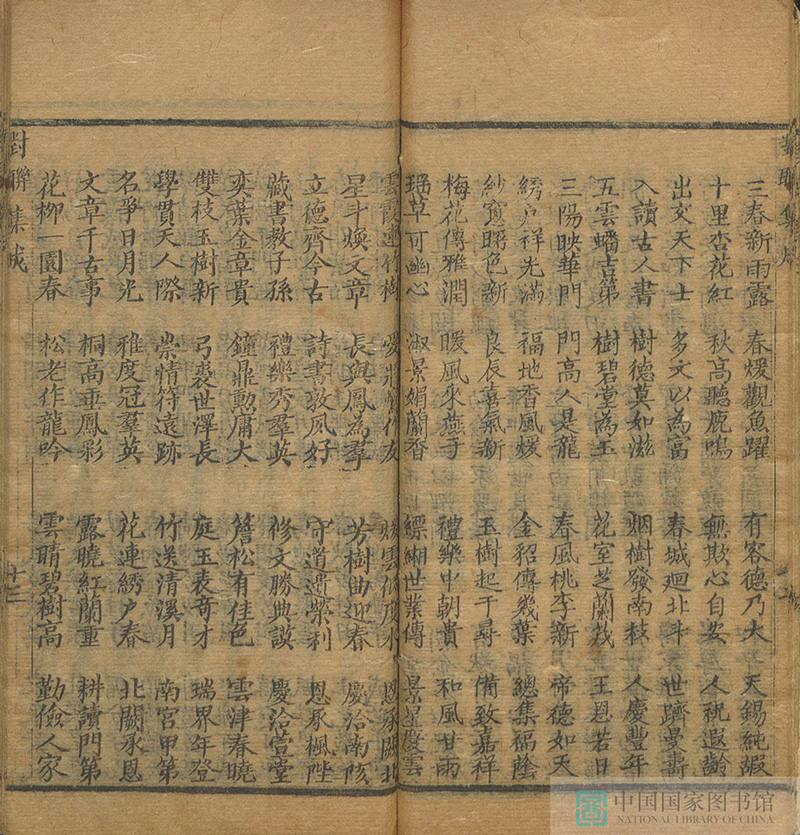 三春新雨露 春煖觀魚躍 有容德乃大 天錫純嘏
十里杏花紅 秋高聽鹿鳴 無欺心自安 人祝遐齡
出交天下士 多文以為富 春城迴北斗 世躋曼壽
入讀古人書 樹德莫如滋 烟樹發南枝 人慶豐年
五雲蟠吉第 樹碧堂為玉 花室芝蘭茂 王恩若日
三陽映華門 門高人是龍 春風桃李新 帝德如天
綉户祥光滿 福地香風煖 金貂傳幾葉 總集福蔭
紗窗曙色新 良辰嘉氣新 玉樹起千尋 備致嘉祥
梅花傳雅潤 暖風來燕子 禮樂中朝貴 和風甘雨
瑶草可幽心 淑景娟蘭香 縹緗世業傳 景星慶雲
雲霞連竹樹
星斗煥文章 長與鳳為羣 芳樹曲迎春 慶洽南陔
立德齊今古 詩書敦夙好 守道遺榮利 恩承楓陛
藏書教子孫 禮樂秀羣英 修文勝典謨 慶洽萱堂
奕葉金章貴 鐘鼎勲庸大 簷松有佳色 雲津春曉
雙枝玉樹新 弓裘世澤長 庭玉表奇才 瑞界年登
學貫天人際 崇情符遠跡 竹送清溪月 南宮甲第
名爭日月光 雅度冠羣英 花連綉户春 北闕承恩
文章千古事 桐高垂鳳彩 露曉紅蘭重 耕讀門第
花柳一園春 松老作龍吟 雲晴碧樹高 勤儉人家
對聯集成
十三
中国国家图书馆
NATIONAL LIBRARY OF CHINA